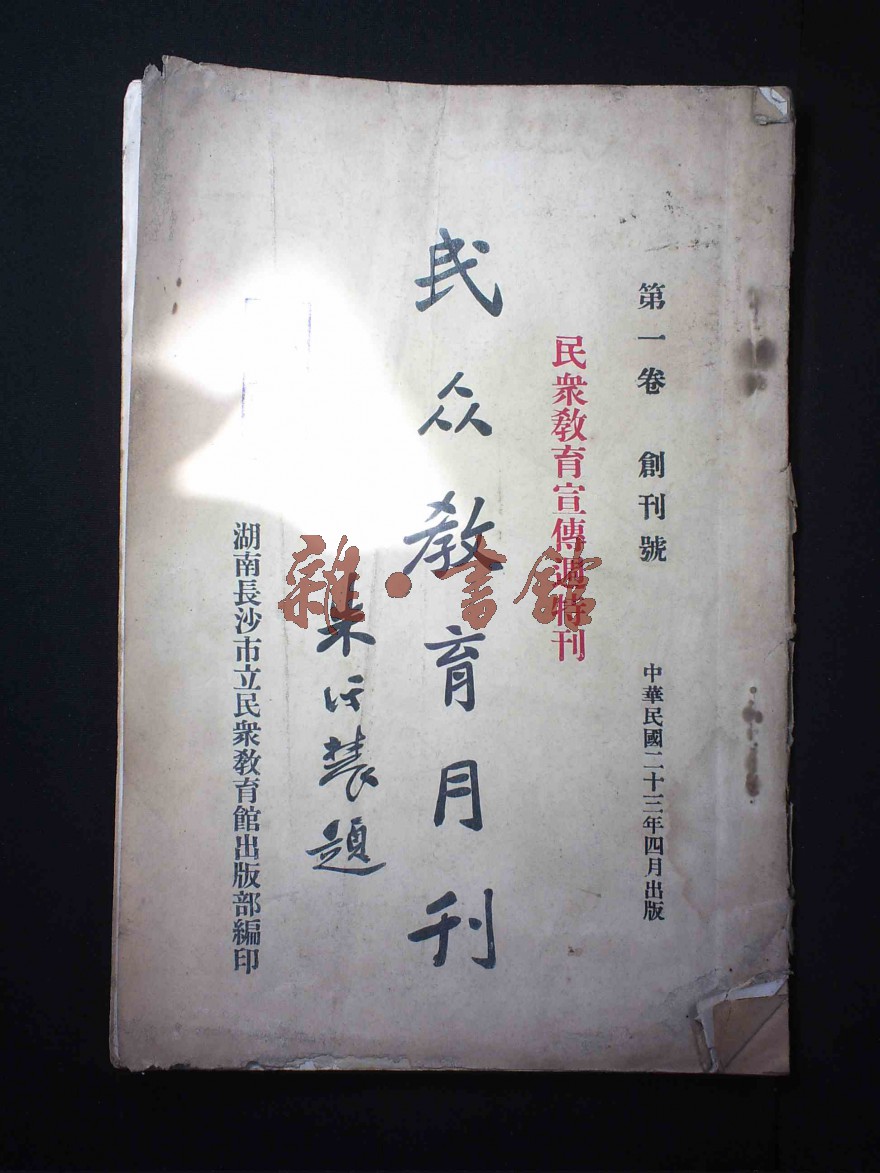 第一卷 創刊號 中華民國二十三年四月出版
民衆敎育宣傳週特刊
民众敎育月刊
題
湖南長沙市立民衆敎育館出版部編印
雜·書館